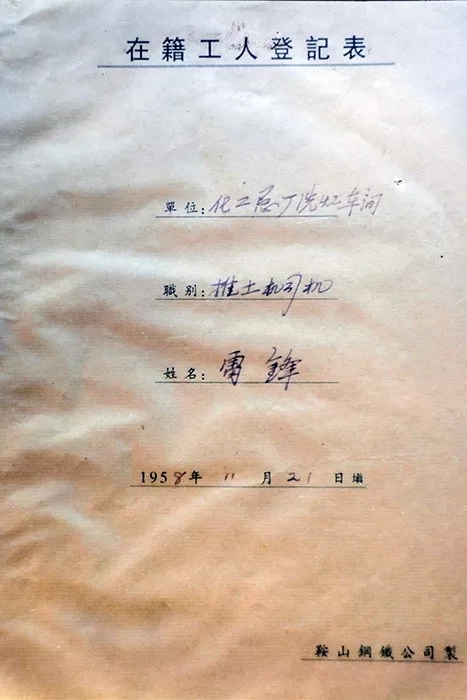 在籍工人登記表
單位:化工总厂洗煤车间
職別:推土机司机
姓名:雷鋒
1958年11月21日塡
鞍山鋼鐵公司製